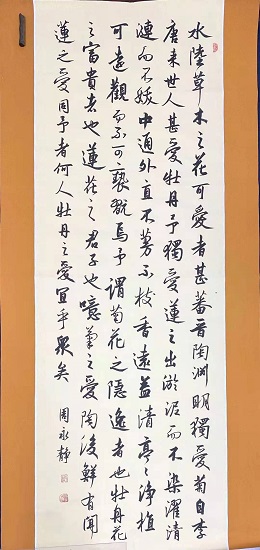 水陸草木之花可愛者甚蕃晋陶渊明獨愛菊自李
唐来世人甚愛牡丹予獨愛蓮之出淤泥而不染濯清
漣而不妖中通外直不蔓不枝香遠益清亭〻淨植
可遠觀而不可褻翫焉予謂菊花之隱逸者也牡丹花
之富貴者也蓮花之君子也噫菊之愛陶後鮮有聞
蓮之愛同予者何人牡丹之愛宜乎衆矣 周永靜